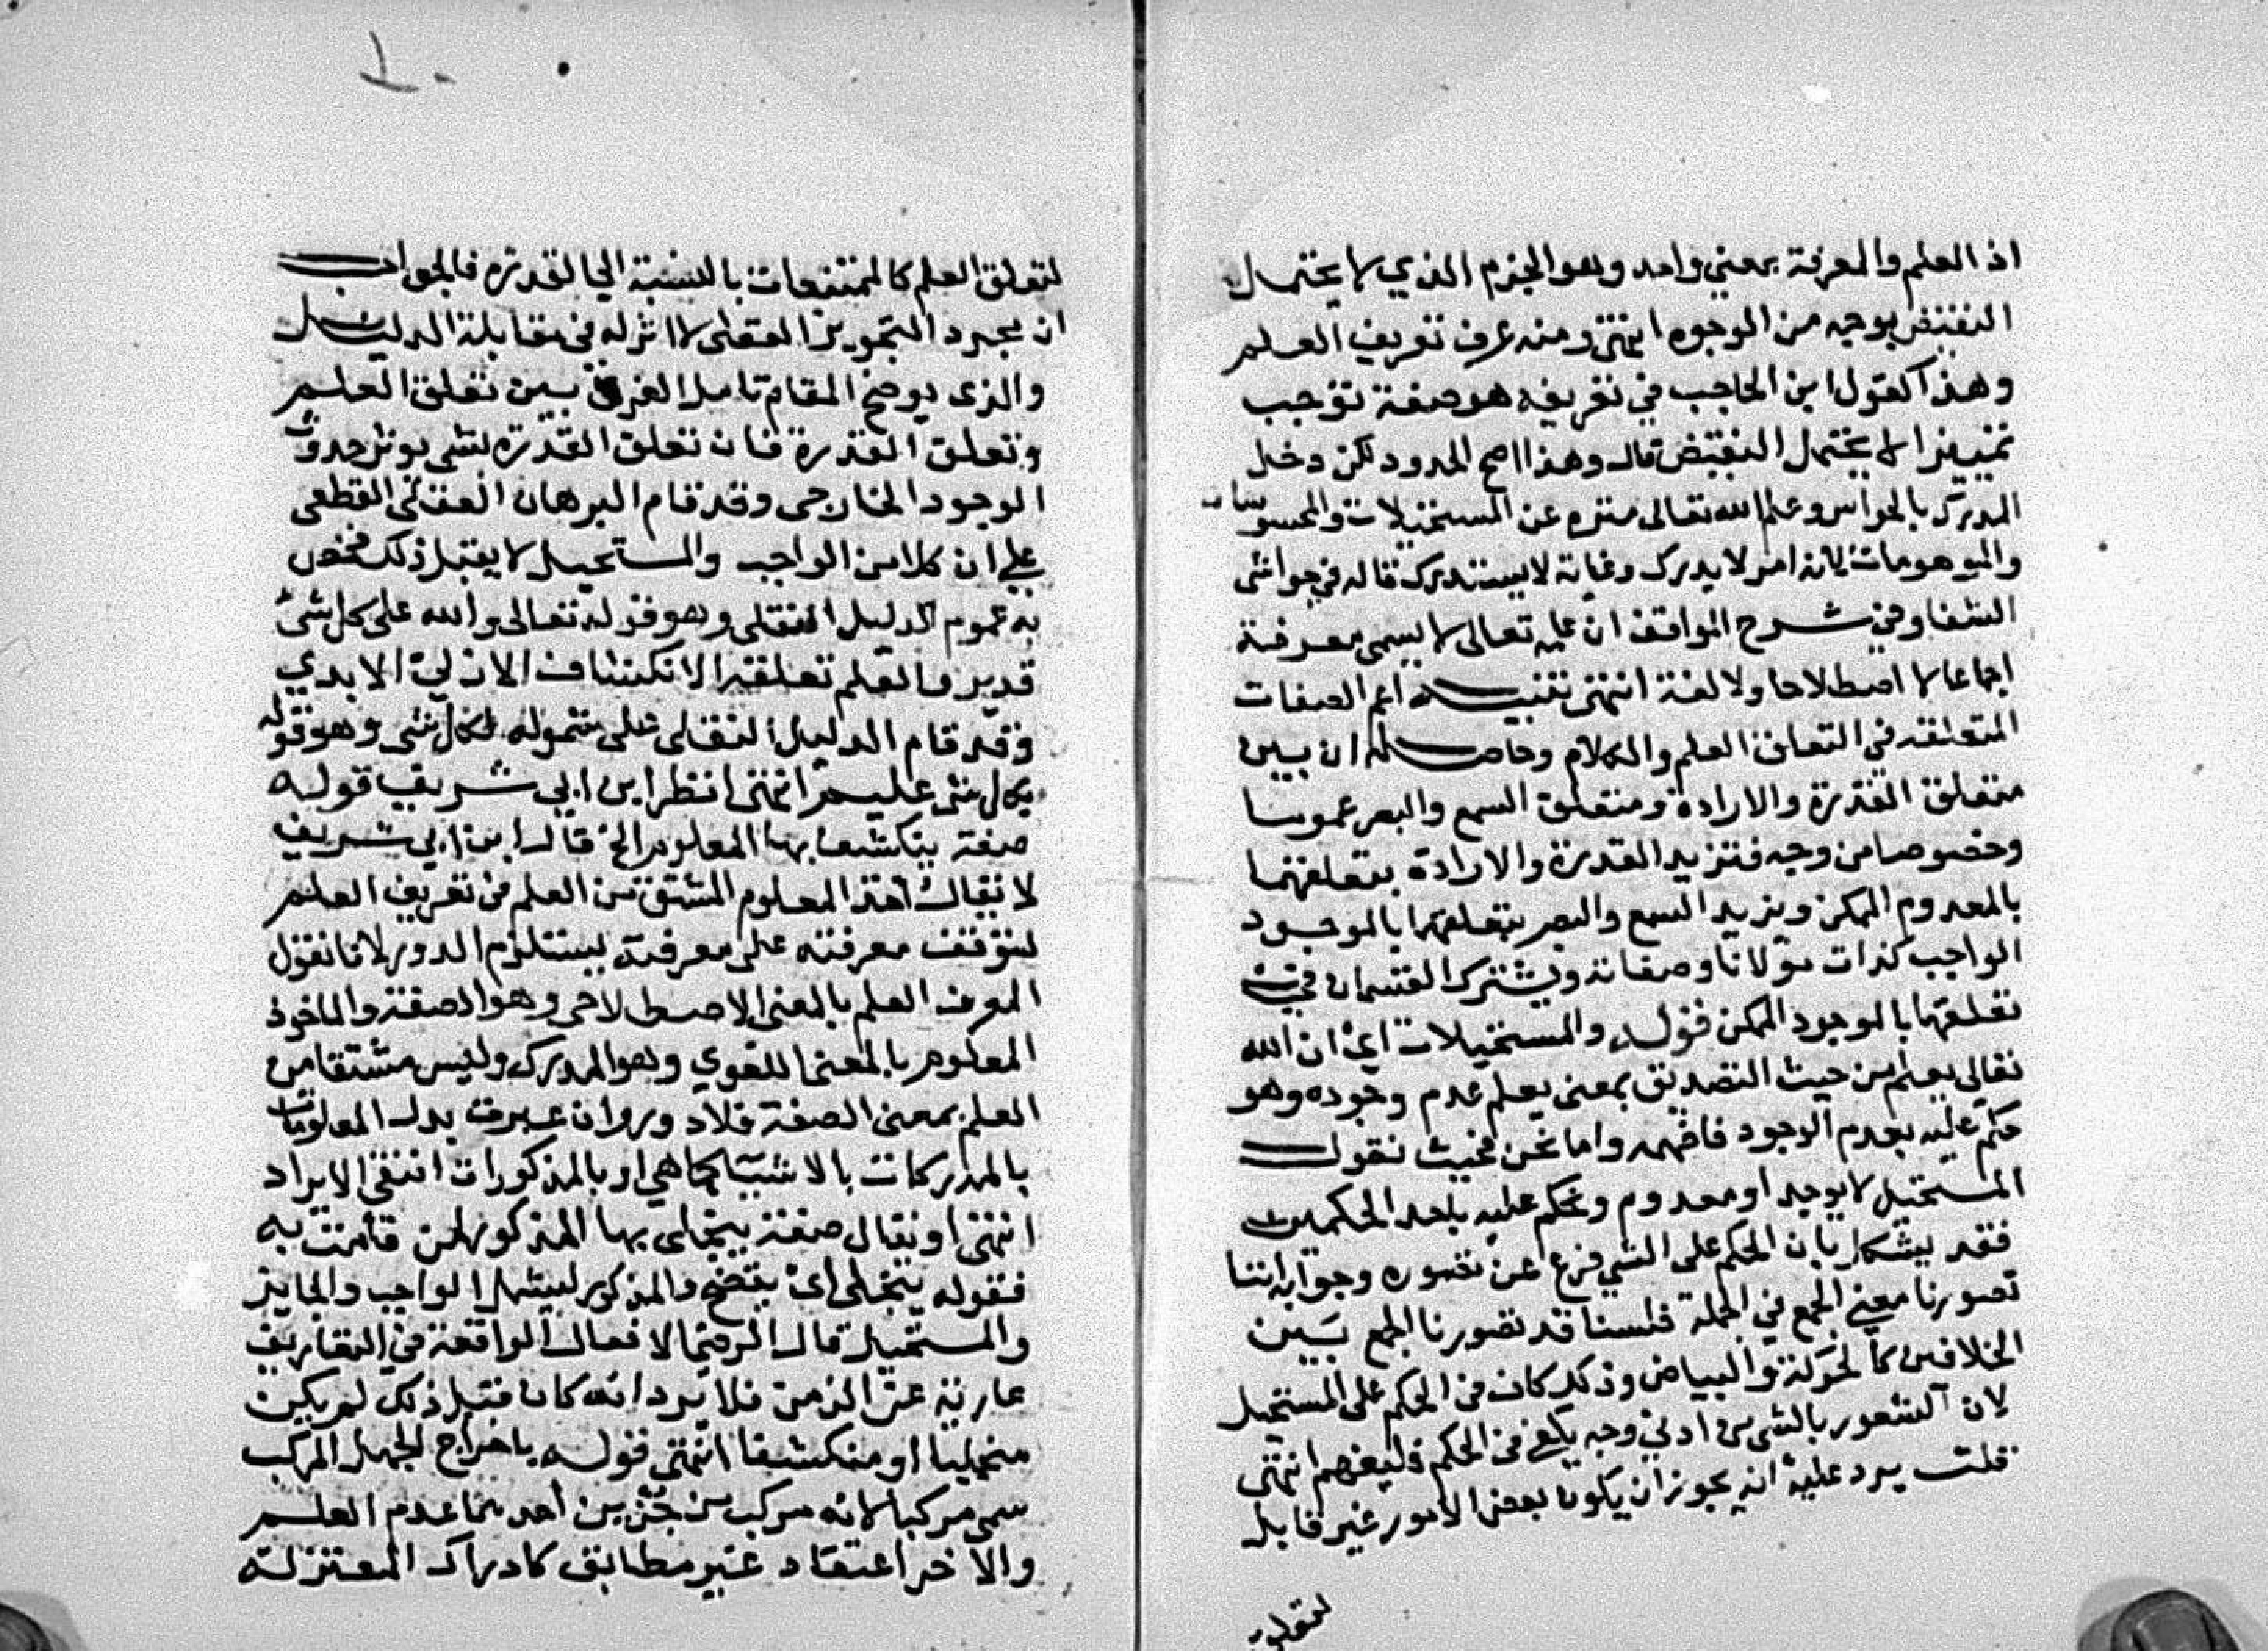 اذ العلم والمعرفة بمعني واحد وهو الجزم الذي لا يحتمال
النقيض بوجه من الوجوه انتهى ومنه عرف تعريف العلم
وهذا كقول ابن الحاجب في تعريفه هو صفة توجب
تمييزا لا يحتمل النقيض قال وهذا اصح الحدود لكن دخل
المدرك بالحواس وعلم الله تعالى منزه عن المستحيلات والمحسوسات
والموهومات لانه امر لا يدرك وغاية لا يستدرك قاله في حواشي
الشفا وفي شرح المواقف ان علمه تعالى لا يسمى معرفة
اجماعا لا اصطلاحا ولا لغة انتهى تنبيه اعم الصفات
المتعلقة في التعلق العلم والكلام وحاصله ان بين
متعلق القدرة والارادة ومتعلق السمع والبصر عموما
وخصوصا من وجه فتزيد القدرة والارادة بتعلقهما
بالمعدوم الممكن ويزيد السمع والبصر بتعلقهما بالموجود
الواجب كذات مولانا وصفاته ويشترك القسمان في
تعلقها بالموجود الممكن قوله والمستحيلات اي ان الله
تعالى يعلم من حيث التصديق بمعنى يعلم عدم وجوده وهو
حكم عليه بعدم الوجود فافهمه واما نحن فحيث نقول
المستحيل لا يوجد او معدوم ونحكم عليه باحد الحكمين
فقد يشكل بان الحكم على الشي فرع عن تصوره وجوابه اننا
تصورنا معني الجمع في الجملة فلسنا قد تصورنا الجمع بين
الخلافين كالحركة والبياض وذلك كاف في الحكم على المستحيل
لان الشعور بالشي من ادني وجه يكفي في الحكم فليفهم انتهى
قلت يرد عليه انه يجوز ان يكون بعض الامور غير قابل
لتعلق
لتعلق العلم كالممتنعات بالنسبة الي القدرة فالجواب
ان مجرد التجويز العقلى لا اثر له في مقابلة الدليل
والذى يوضح المقام تامل الفرق بين تعلق العلم
وتعلق القدرة فان تعلق القدرة لشي يوثر حدوث
الوجود الخارجى وقد قام البرهان العقلي القطعى
علي ان كلا من الواجب والمستحيل لا يقبل ذلك فخص
به عموم الدليل النقلى وهو قوله تعالى والله على كل شئ
قدير والعلم تعلقه الانكشاف الازلي الابدي
وقد قام الدليل النقلى على شموله لكل شى وهو قوله
بكل شى عليم انتهى انظر ابن ابي شريف قوله
صفة ينكشف بها المعلوم الخ قال ابن ابي شريف
لا يقال اخذ المعلوم المشتق من العلم في تعريف العلم
لتوقف معرفته على معرفته يستلزم الدور لانا نقول
المعرف العلم بالمعنى الاصطلاحي وهو الصفة والماخوذ
المعلوم بالمعنى اللغوي وهو المدرك وليس مشتقا من
العلم بمعنى الصفة فلا دور وان عبرت بدل المعلومات
بالمدركات بالاشيا كما هي او بالمذكورات انتفى الايراد
انتهى او يقال صفة يتجلى بها المذكور لمن قامت به
فقوله يتجلى اي يتضح والمذكور ليشمل الواجب والجايز
والمستحيل قال الرضى الافعال الواقعة في التعاريف
عارية عن الزمن فلا يرد انه كان قبل ذلك لم يكن
متجليا او منكشفا انتهى قوله باخراج الجهل المركب
سمى مركبا لانه مركب من جزين احدهما عدم العلم
والاخر اعتقاد غير مطابق كادراك المعتزلة